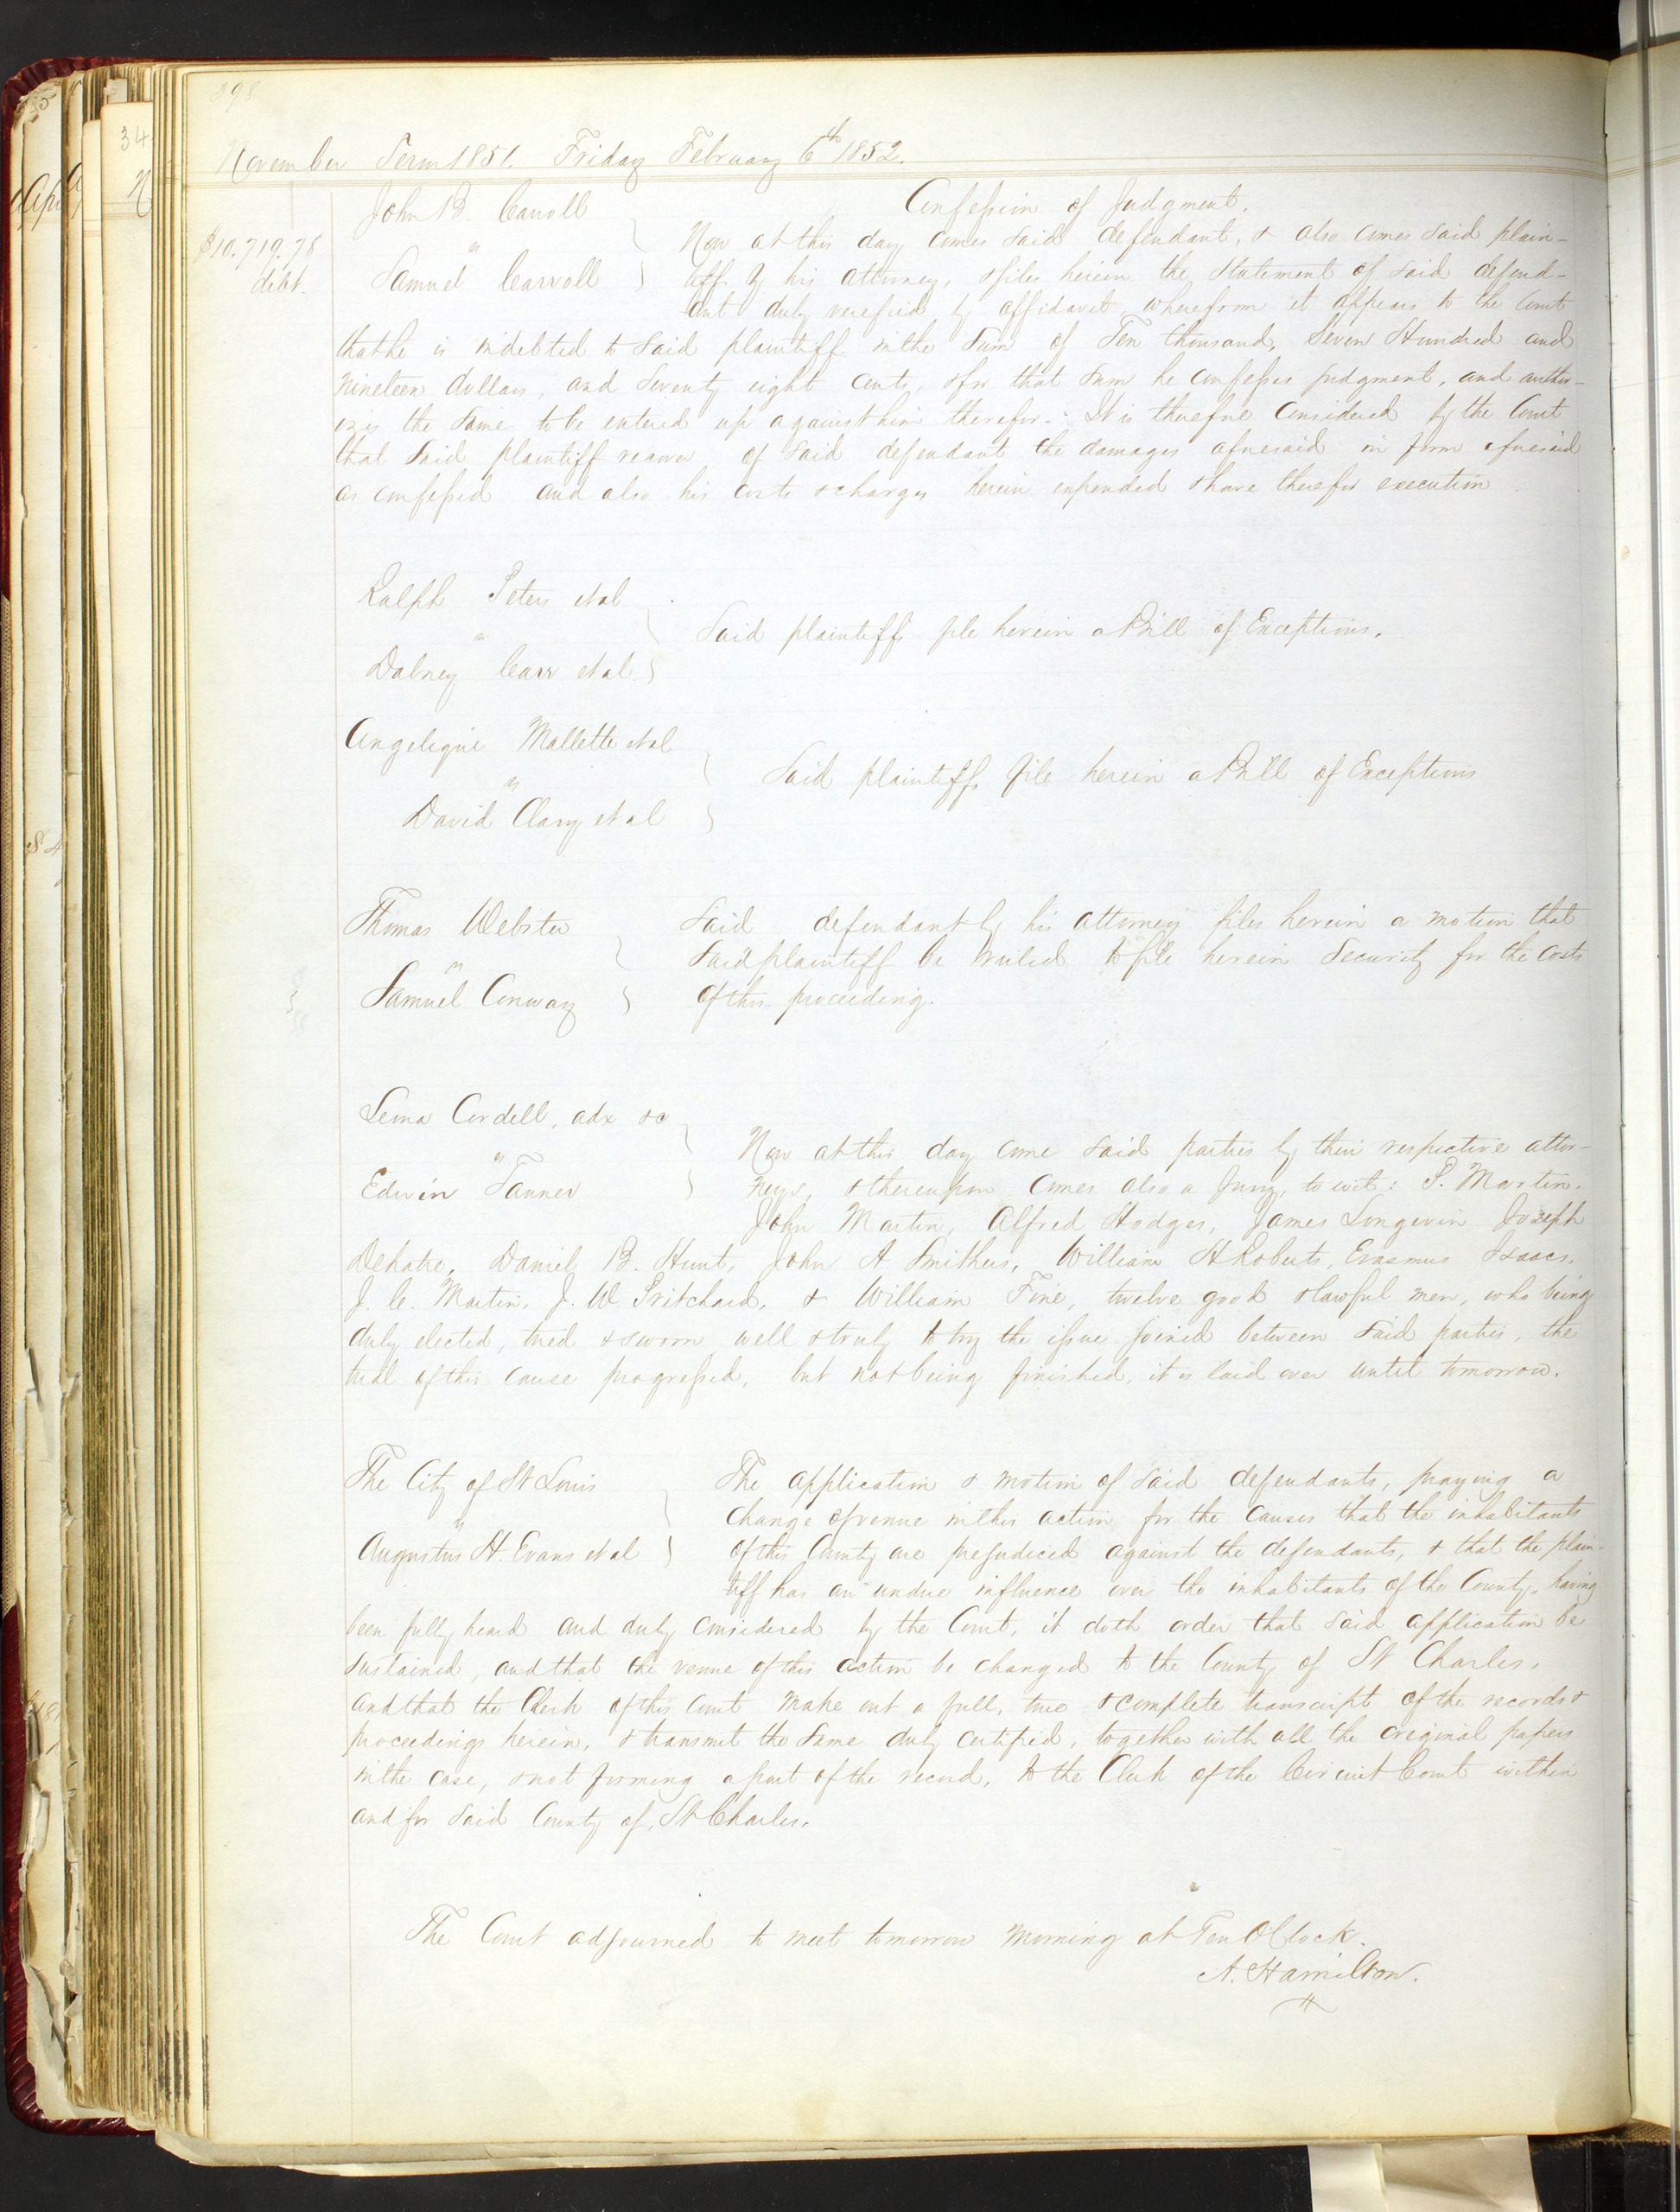 398
November Term 1851. Friday February 6th 1852.
John B. Carroll
"
Samuel Carroll
$10.719.78
debt.
Confession of Judgment.
Now at this day comes said defendant, & also comes said plain-
tiff by his attorney, & files herein the statement of said defend-
ant duly verified by affidavit wherefrom it appears to the Court
that he is indebted to said plaintiff in the sum of Ten thousand, Seven Hundred and
Nineteen dollars, and Seventy eight cents, & for that sum he confesses judgment, and author-
izes the same to be entered up against him therefor. It is therefore considered by the Court
that said plaintiff recover of said defendant the damages aforesaid in form aforesaid
as confessed and also his costs & charges herein expended & have therefor execution.
Ralph Peters et al
"
Dabney Carr et al
Said plaintiffs file herein a Bill of Exceptions.
Angelique Mallette et al
"
David Clary et al
Said plaintiffs file herein a Bill of Exceptions
Thomas Webster
"
Samuel Conway
Said defendant by his attorney files herein a motion that
said plaintiff be ruled to file herein security for the costs
of this proceeding.
Cordell, adx &c
"
Edwin Tanner
Now at this day come said parties by their respective attor-
neys, & thereupon comes also a Jury, to wit: P. Martin.
John Martin, Alfred Hodges, James Longevin Joseph
Dehatre, Daniel B. Hunt, John A. Smithers, William H Roberts, Erasmus Isaacs,
J. C. Martin, J. W. Pritchard, & William Fine, twelve good & lawful men, who being
duly elected, tried & sworn well & truly to try the issue joined between said parties, the
trial of this cause progressed, but not being finished, it is laid over until tomorrow.
The City of St Louis
"
Augustus H. Evans et al
The application & motion of said defendants, praying a
change of venue in this action for the causes that the inhabitants
of this County are prejudiced against the defendants, & that the plain-
tiff has an undue influence over the inhabitants of the County, having
been fully heard and duly considered by the Court, it doth order that said application be
sustained, and that the venue of this action be changed to the County of St Charles,
and that the Clerk of this Court make out a full, true & complete transcript of the records &
proceedings herein, & transmit the same duly certified, together with all the original papers
in the case, & not forming a part of the record, to the Clerk of the Circuit Court within
and for said County of St Charles.
The Court adjourned to meet tomorrow morning at Ten OClock.
A. Hamilton.